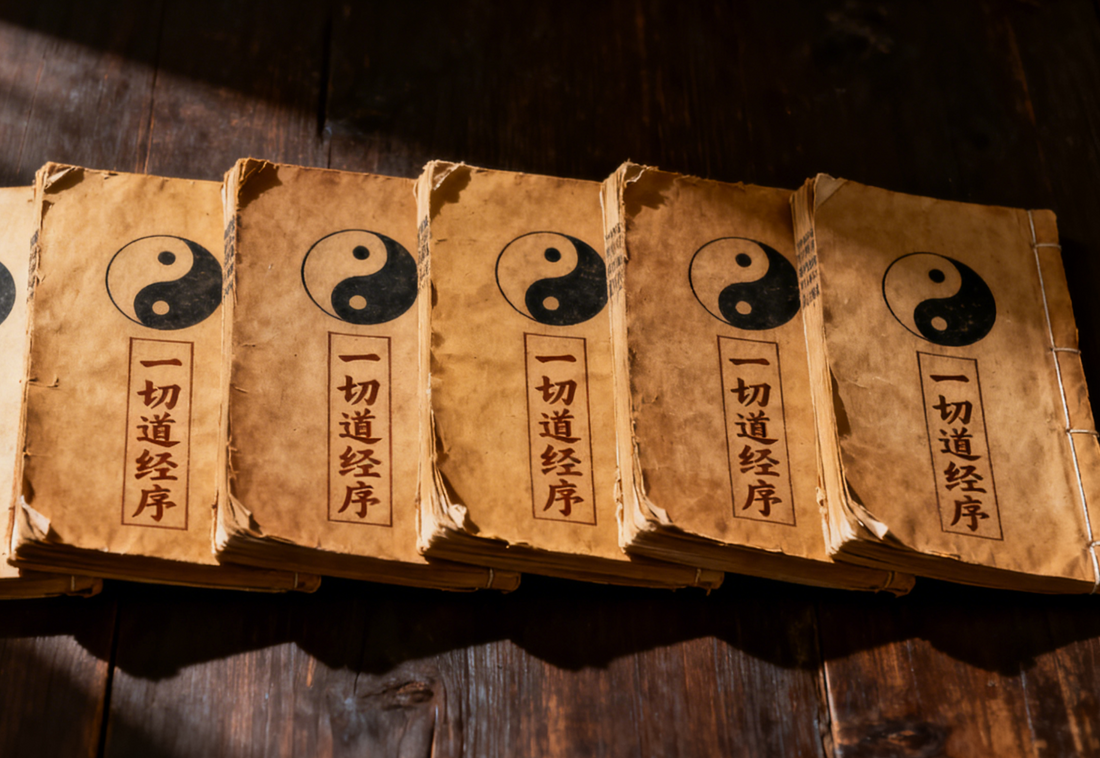 一切道经序
一切道经序
一切道经序
一切道经序
一切道经序